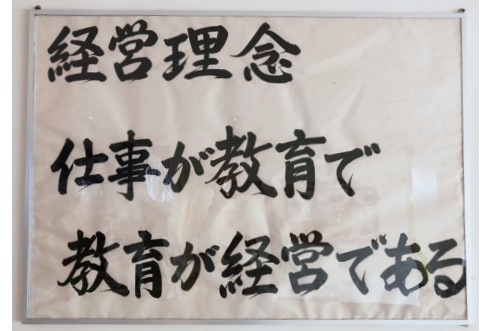 経営理念
仕事が教育で
教育が経営である